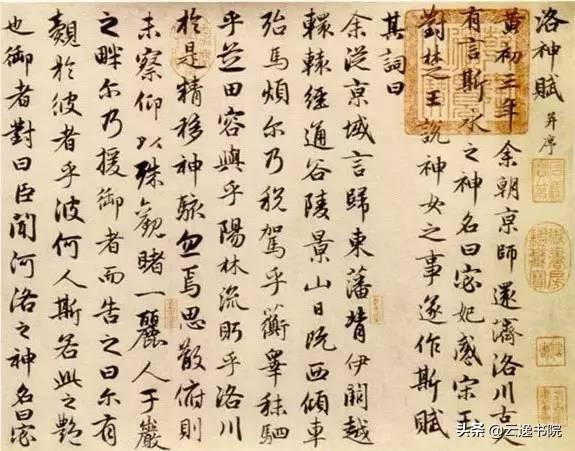 洛神賦 并序
黄初三年余朝京師還濟洛川古人
有言斯水之神名曰宓妃感宋玉
對楚王說神女之事遂作斯賦
其詞曰
余從京域言歸東藩背伊闕越
轘轅經通谷陵景山日既西傾車
殆馬煩尔乃稅駕乎蘅皋秣駟
乎芝田容與乎陽林流眄乎洛川
於是精移神駭忽焉思散俯則
未察仰以殊觀睹一麗人于巖
之畔尔乃援御者而告之曰尔有
覿於彼者乎彼何人斯若此之艷
也御者對曰臣聞河洛之神名曰宓
头条 @云逸书院